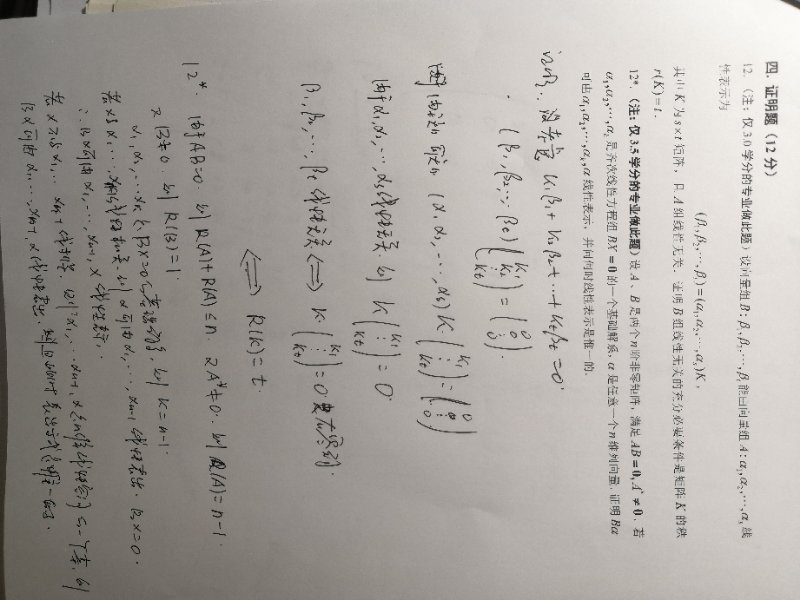 四. 证明题（12 分）
12.（注：仅 3.0 学分的专业做此题）设向量组 B: β₁,β₂,⋯,βₜ 能由向量组 A: α₁,α₂,⋯,αₛ 线
性表示为
(β₁,β₂,⋯,βₜ)=(α₁,α₂,⋯,αₛ)K，
其中 K 为 s×t 矩阵，且 A 组线性无关. 证明 B 组线性无关的充分必要条件是矩阵 K 的秩
r(K)=t.
12*.（注：仅 3.5 学分的专业做此题）设 A、B 是两个 n 阶非零矩阵，满足 AB=0, A*≠0. 若
α₁,α₂,⋯,αₖ 是齐次线性方程组 BX=0 的一个基础解系, α 是任意一个 n 维列向量. 证明 Bα
可由 α₁,α₂,⋯,αₖ,α 线性表示，并问何时线性表示是惟一的.
证明: 设 k₁β₁+k₂β₂+⋯+kₜβₜ=0.
(β₁,β₂,⋯,βₜ)(k₁ k₂ ⋮ kₜ)=(0 0 ⋮ 0).
(α₁,α₂,⋯,αₛ)K·(k₁ ⋮ kₜ)=(0 0 ⋮ 0)
由于α₁,α₂,⋯,αₛ线性无关. 则 K(k₁ ⋮ kₜ)=0.
β₁,β₂,⋯,βₜ 线性无关 ⟺ K·(k₁ ⋮ kₜ)=0 只有零解.
⟺ R(K)=t.
12*. 由于AB=0. 则 R(A)+R(A)≤n. 又A*≠0. 则 R(A)=n-1.
又 B≠0. 则 R(B)=1.
α₁,α₂,⋯αₖ 是 BX=0 的基础解系, 则 k=n-1.
若α与α₁,⋯,线性相关. 则 α可由α₁,⋯,αₙ₋₁ 线性表出. Bα=0.
∴ Bα可由 α₁,⋯,αₙ₋₁,α 线性表示.
若 α 不与 α₁,⋯αₙ₋₁ 线性相关. 则 α₁,⋯αₙ₋₁,α 是n维线性空间的一个基, 则
Bα可由 α₁,⋯,αₙ₋₁,α线性表出. 且此时表出方式是唯一的.